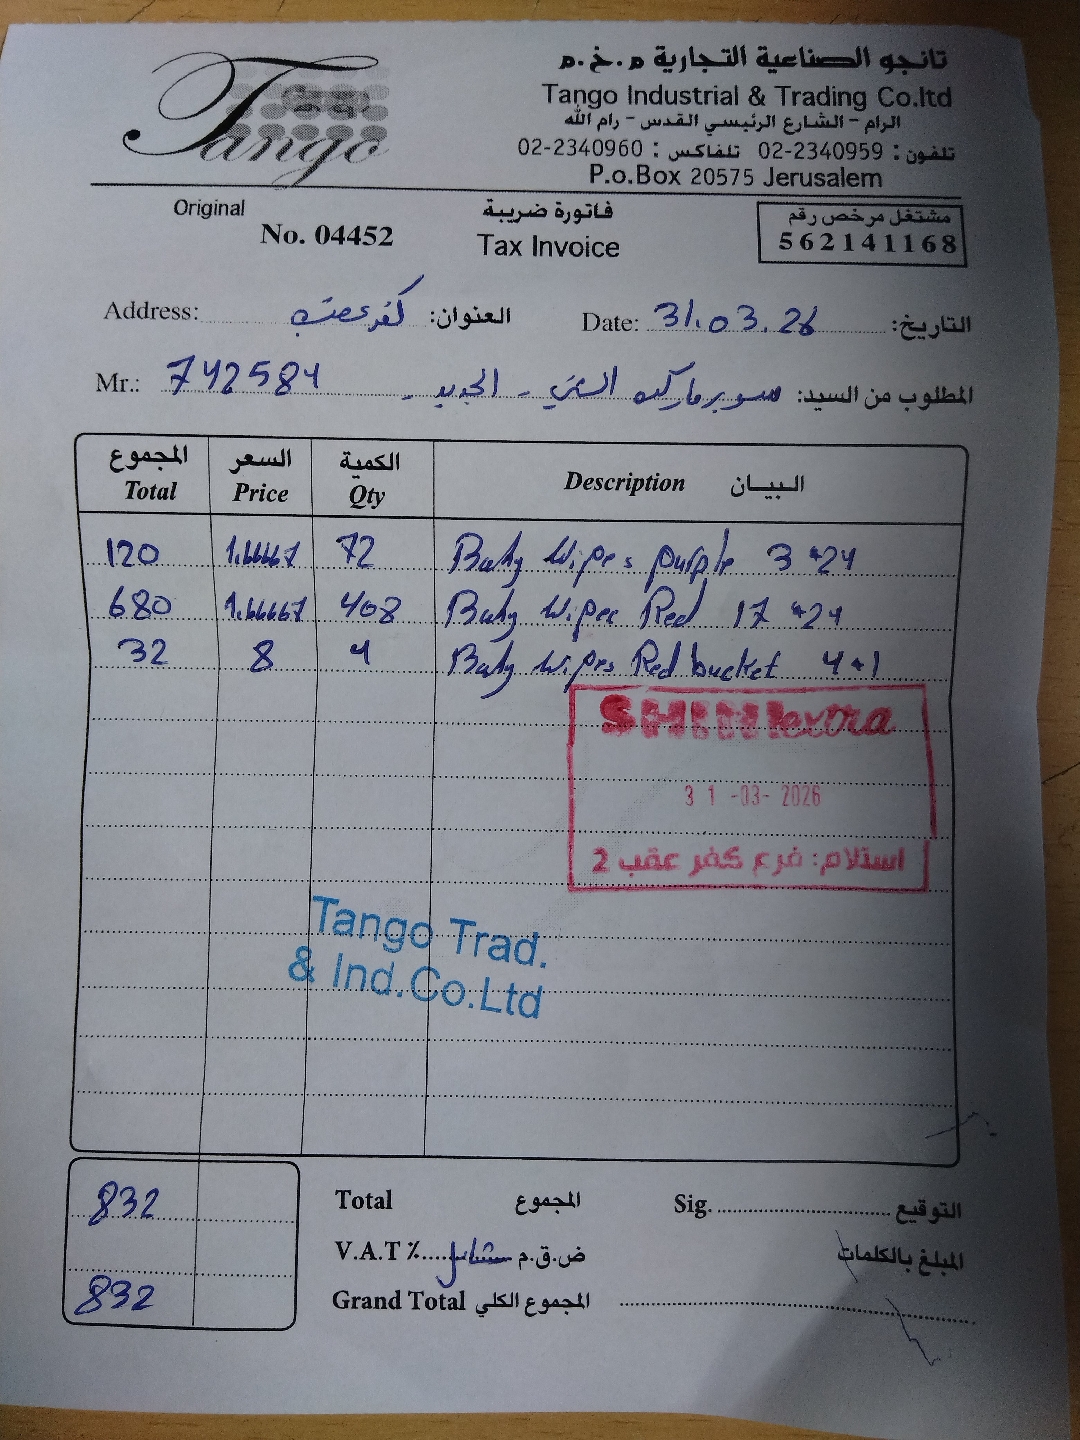 Tango
تانجو الصناعية التجارية م.خ.م
Tango Industrial & Trading Co.ltd
الرام - الشارع الرئيسي القدس - رام الله
تلفون : 02-2340959 تلفاكس : 02-2340960
P.o.Box 20575 Jerusalem
Original
No. 04452
فاتورة ضريبة
Tax Invoice
مشتغل مرخص رقم
562141168
Address: العنوان: كفر عقب
Date: 31.03.26 التاريخ:
Mr.: 742584 المطلوب من السيد: سوبر ماركت - الجديد -
المجموع السعر الكمية البيان
Total Price Qty Description
120 1.66667 72 Baby Wipes purple 3*24
680 1.66667 408 Baby Wipes Red 17*24
32 8 4 Baby Wipes Red bucket 4*1
SHINI extra
31-03-2026
استلام: فرع كفر عقب 2
Tango Trad.
& Ind.Co.Ltd
832 Total المجموع Sig. التوقيع
V.A.T ٪ شامل ض.ق.م المبلغ بالكلمات
832 Grand Total المجموع الكلي